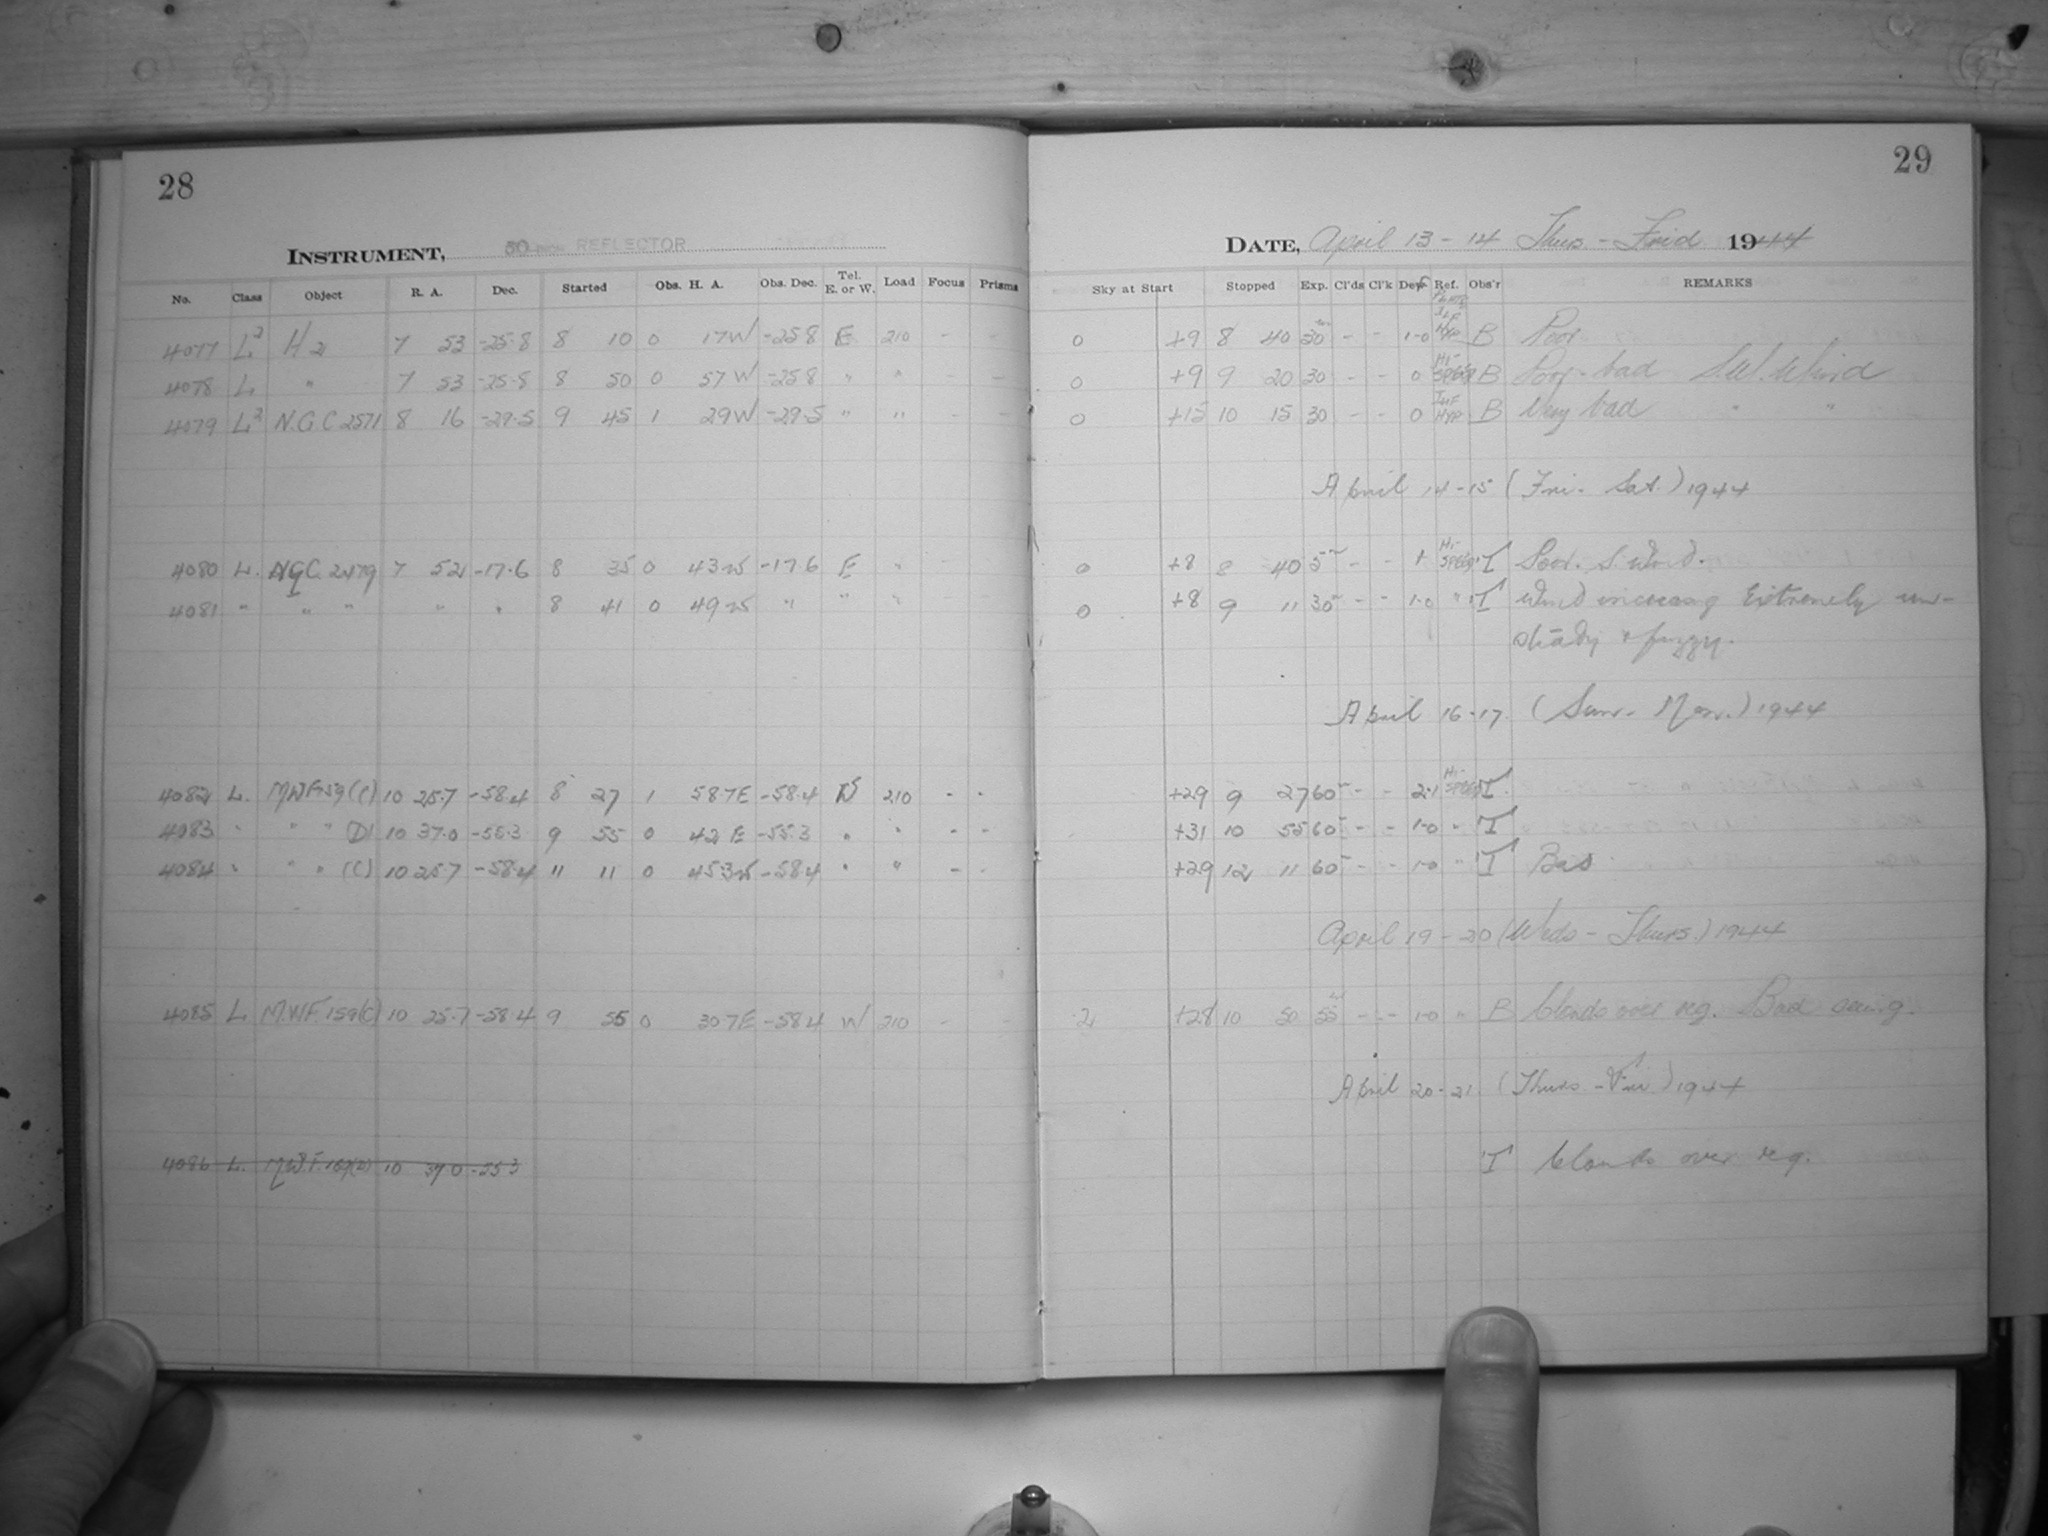 28
29
INSTRUMENT, 60-INCH REFLECTOR
DATE, April 13 - 14 Thurs. - Frid. 1944
No. Class Object R. A. Dec. Started Obs. H. A. Obs. Dec. Tel. E. or W. Load Focus Prisms Sky at Start Stopped Exp. Cl'ds Cl'k Dew Ref. Obs'r REMARKS
4077 L2 H 7 53 -25.8 8 10 0 17W -25.8 E 210 - - 0 +9 8 40 30 - - 1-0 B Poor
4078 L " 7 53 -25.8 8 50 0 57W -25.8 " " - - 0 +9 9 20 30 - - 0 Hi-Speed B Poor - bad S.W. Wind
4079 L2 N.G.C 2571 8 16 -29.5 9 45 1 29W -29.5 " " - - 0 +15 10 15 30 - - 0 B Very bad " "
April 14-15 (Fri. - Sat.) 1944
4080 L. N.G.C. 2479 7 52 -17.6 8 35 0 43W -17.6 E " 0 +8 8 40 5 - - 1 Hi-Speed T Poor. S. Wind.
4081 " " " " " 8 41 0 49W " " " 0 +8 9 11 30 - - 1-0 " T Wind increasing Extremely un-
steady & fuzzy.
April 16-17 (Sun. - Mon.) 1944
4082 L. MWF 159 (C) 10 25.7 -58.4 8 27 1 58.7E -58.4 W 210 - - +29 9 27 60 - - 2-1 Hi-Speed T.
4083 " " " (D) 10 37.0 -55.3 9 55 0 42 E -55.3 " " - - +31 10 55 60 - - 1-0 " T
4084 " " " (C) 10 25.7 -58.4 11 11 0 45.3W -58.4 " " - - +29 12 11 60 - - 1-0 " T Bad
April 19 - 20 (Weds - Thurs.) 1944
4085 L M.W.F. 159(C) 10 25.7 -58.4 9 55 0 30.7E -58.4 W 210 - - 2 +28 10 50 55 - - 1-0 " B Clouds over reg. Bad seeing.
April 20-21 (Thurs. - Fri.) 1944
4086 L. M.W.F. 159(D) 10 37.0 -55.3 T Clouds over reg.